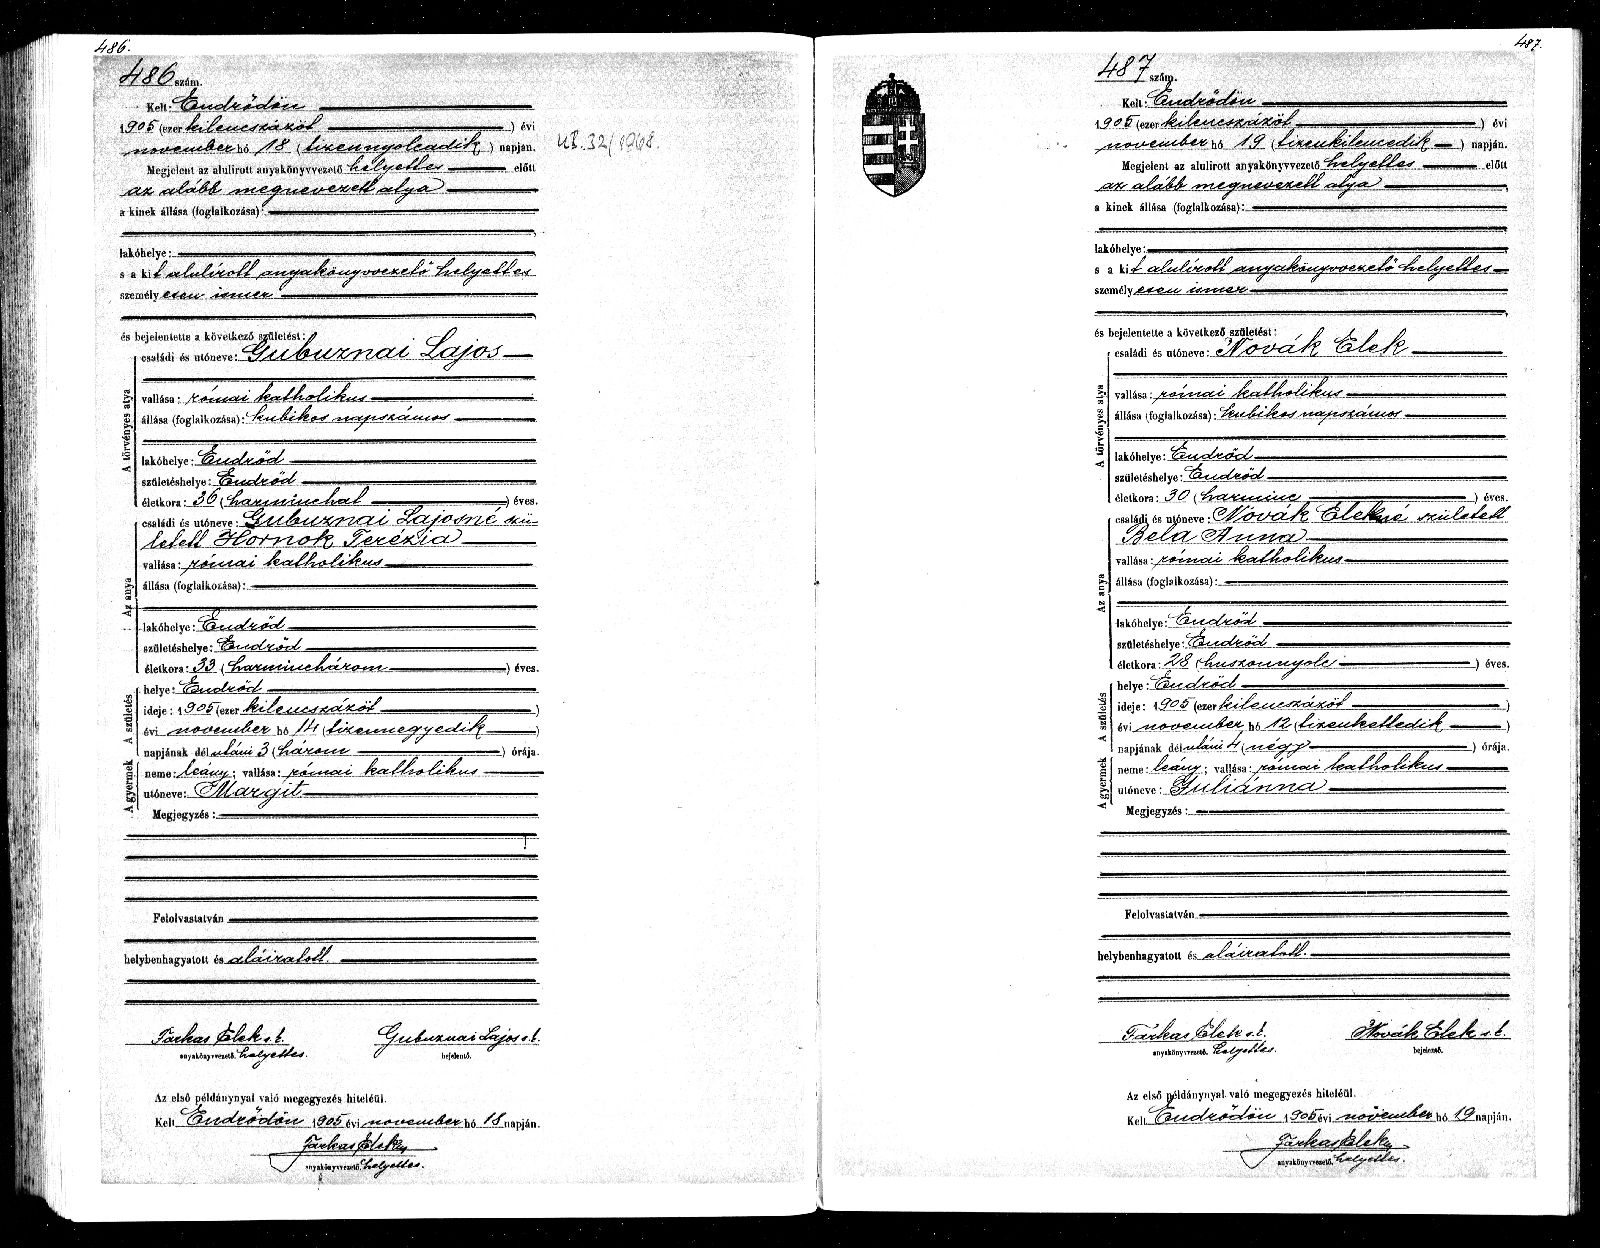 486.
486 szám.
Kelt: Endrődön
1905 (ezer kilencszázöt ) évi
november hó 18 (tizennyolcadik ) napján.
Megjelent az alulirott anyakönyvvezető helyettes előtt
az alább megnevezett atya
a kinek állása (foglalkozása):
lakóhelye:
s a kit alulírott anyakönyvvezető helyettes
személyesen ismer
és bejelentette a következő születést:
A törvényes atya
családi és utóneve: Gubuznai Lajos
vallása: római katholikus
állása (foglalkozása): kubikos napszámos
lakóhelye: Endrőd
születéshelye: Endrőd
életkora: 36 (harminchat ) éves.
Az anya
családi és utóneve: Gubuznai Lajosné szü-
letett Hornok Terézia
vallása: római katholikus
állása (foglalkozása):
lakóhelye: Endrőd
születéshelye: Endrőd
életkora: 33 (harminchárom ) éves.
A születés
helye: Endrőd
ideje: 1905 (ezer kilencszázöt )
évi november hó 14 (tizennegyedik )
napjának délutáni 3 (három ) órája.
A gyermek
neme: leány; vallása: római katholikus
utóneve: Margit
Megjegyzés:
Felolvastatván
helybenhagyatott és aláiratott.
Farkas Elek s. k. Gubuznai Lajos s. k.
anyakönyvvezető. helyettes. bejelentő.
Az első példánynyal való megegyezés hiteléül.
Kelt Endrődön 1905 évi november hó 18 napján.
Farkas Elek
anyakönyvvezető. helyettes.
32/1968.
487.
487 szám.
Kelt: Endrődön
1905 (ezer kilencszázöt ) évi
november hó 19 (tizenkilencedik ) napján.
Megjelent az alulirott anyakönyvvezető helyettes előtt
az alább megnevezett atya
a kinek állása (foglalkozása):
lakóhelye:
s a kit alulírott anyakönyvvezető helyettes
személyesen ismer
és bejelentette a következő születést:
A törvényes atya
családi és utóneve: Novák Elek
vallása: római katholikus
állása (foglalkozása): kubikos napszámos
lakóhelye: Endrőd
születéshelye: Endrőd
életkora: 30 (harminc ) éves.
Az anya
családi és utóneve: Novák Elekné született
Bela Anna
vallása: római katholikus
állása (foglalkozása):
lakóhelye: Endrőd
születéshelye: Endrőd
életkora: 28 (huszonnyolc ) éves.
A születés
helye: Endrőd
ideje: 1905 (ezer kilencszázöt )
évi november hó 12 (tizenkettedik )
napjának délutáni 4 (négy ) órája.
A gyermek
neme: leány; vallása: római katholikus
utóneve: Juliánna
Megjegyzés:
Felolvastatván
helybenhagyatott és aláiratott.
Farkas Elek s. k. Novák Elek s. k.
anyakönyvvezető. helyettes. bejelentő.
Az első példánynyal való megegyezés hiteléül.
Kelt Endrődön 1905 évi november hó 19 napján.
Farkas Elek
anyakönyvvezető. helyettes.